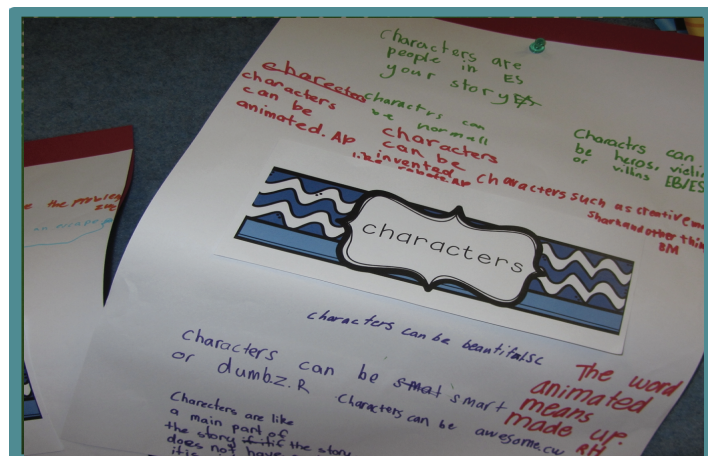 characters are
people in ES
your story
charecters
characters
can be
animated. AD
charactrs can
be normall
characters
can be
invented
like robots. AD
Charactrs can
be heros, 
or villins EB/ES
Characters such as creative
Shark and other
BM
characters
characters can be beautiful SC
characters can be smat smart
or dumb.z.R
Characters can be awesome.cw
The word
animated
means
made up.
RH
Charecters are like
a main part of
the story if itis the story
does not have
itis
e the problem
an escape